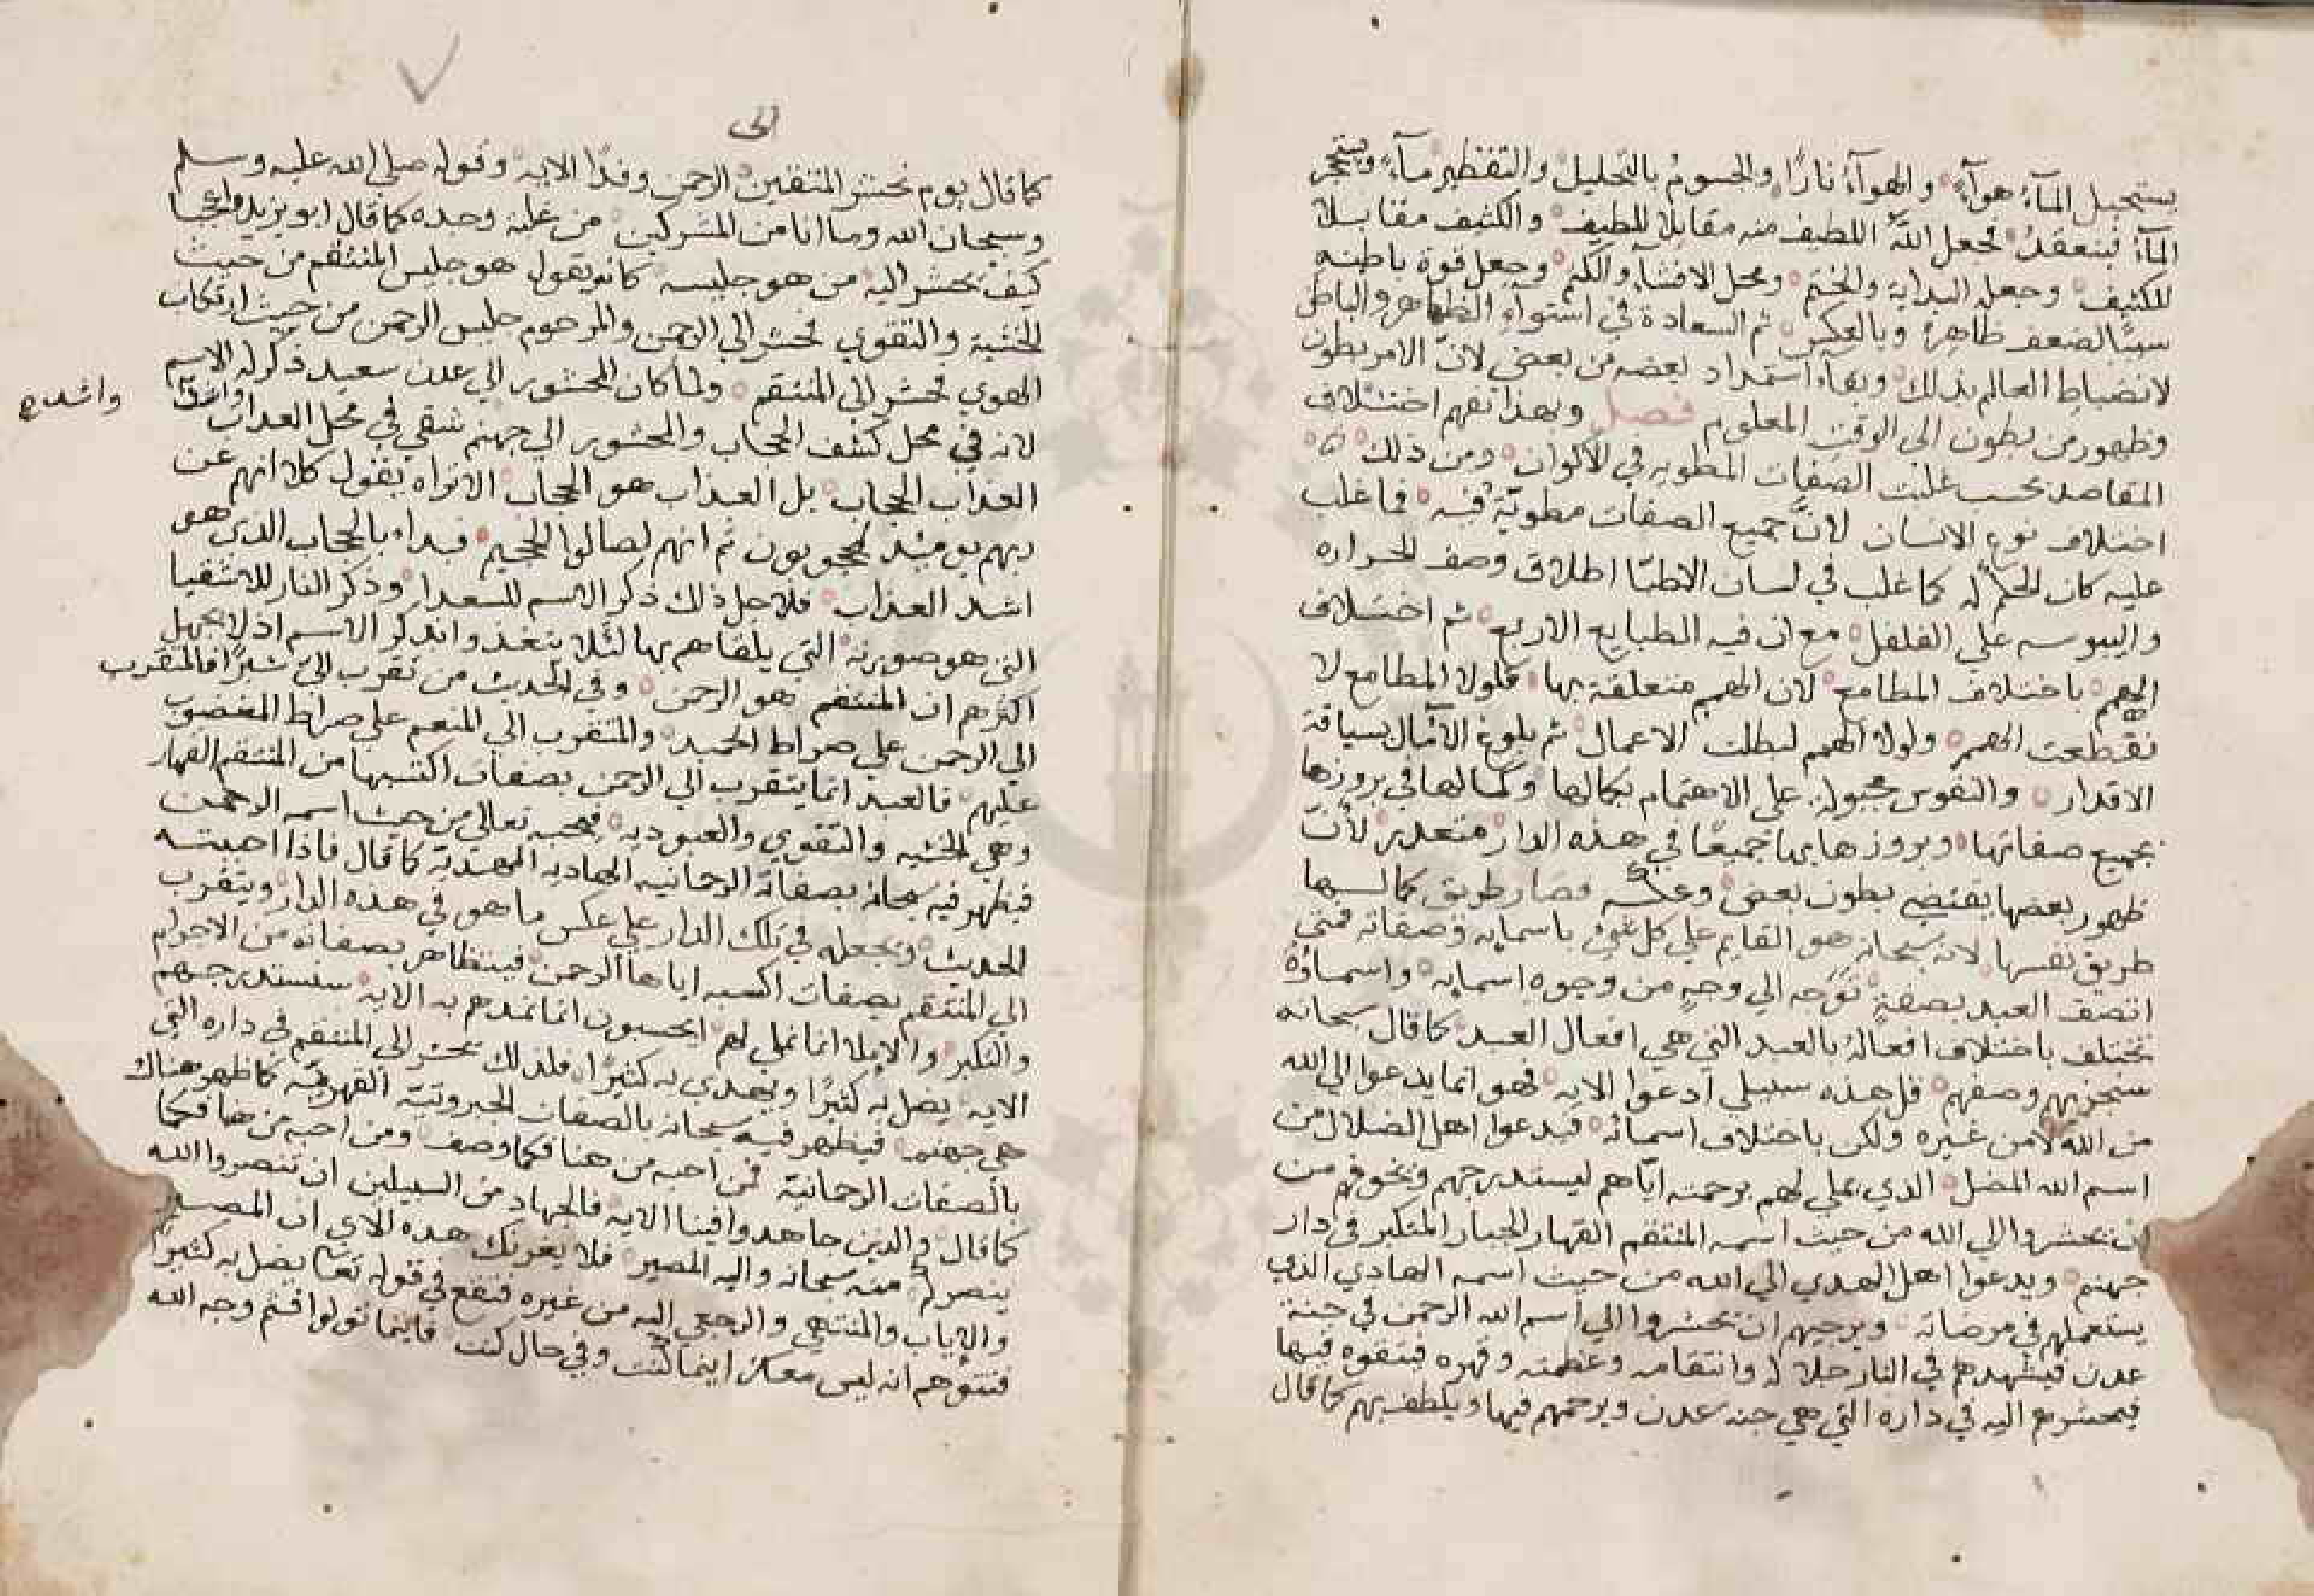 يستحيل المآء هوآء والهوآء نارًا والجسوم بالتحليل والتقطير مآء ويتحجر
المآء فينعقد فجعل الله اللطيف منه مقابلا للطيف والكثيف مقابلا
للكثيف وجعله البداية والختم ومحل الافشآ والكتم وجعل قوة باطنه
سببًا لضعف ظاهره وبالعكس ثم السعادة في استواء الظاهر والباطن
لانضباط العالم بذلك وبقآء استمداد بعضه من بعض لانّ الامر بطون
وظهور من بطون الى الوقت المعلوم فصل وبهذا تفهم اختلاف
المقاصد بحسب غلبت الصفات المطويه في الاكوان ومن ذلك
اختلاف نوع الانسان لانّ جميع الصفات مطويّة فيه فما غلب
عليه كان الحكم له كما غلب في لسان الاطبّا اطلاق وصف الحراره
واليبوسه على الفلفل مع ان فيه الطبايع الاربع ثم اختلاف
الهمم باختلاف المطامع لان الهمم متعلقة بها فلولا المطامع لا
نقطعت الهمم ولولا الهمم لبطلت الاعمال ثم بلوغ الآمال بسياقة
الاقدار والنفوس مجبوله على الاهتمام بكمالها وكمالها في بروزها
بجميع صفاتها وبروزها بها جميعًا في هذه الدار متعذر لأن
ظهور بعضها يقتضي بطون بعض وعكسه فصار طريق كمالها
طريق نفسها لانه سبحانه هو القايم على كل شيء باسمايه وصفاته فمتى
اتصف العبد بصفة توجه الي وجهٍ من وجوه اسمايه واسماؤه
تختلف باختلاف افعاله بالعبد التي هي افعال العبد كما قال سبحانه
سنجزيهم وصفهم قل هذه سبيلي ادعوا الايه فهو انما يدعوا الي الله
من الله لا من غيره ولكن باختلاف اسمائه فيدعوا اهل الضلال من
اسم الله المضل الذي يملي لهم برحمته ايّاهم ليستدرجهم ويخوفهم من
ان يحشروا الي الله من حيث اسمه المنتقم القهار الجبار المتكبر في دار
جهنم ويدعوا اهل الهدي الي الله من حيث اسمه الهادي الذي
يستعملهم في مرضاته ويرجيهم ان يحشروا الي اسم الله الرحمن في جنة
عدن فيشهدهم في النار جلاله وانتقامه وعظمته وقهره فيتقوه فيها
فيحشرهم اليه في داره التي هي جنه عدن ويرحمهم فيها ويلطف بهم كما قال
الى
كما قال يوم نحشر المتقين الرحمن وفدًا الايه وقوله صلي الله عليه وسلم
وسبحان الله وما انا من المشركين من غلبة وحده كما قال ابو يزيد واعجبا
كيف يحشر اليه من هو جليسه كانه يقول هو جليس المنتقم من حيث
الخشية والتقوي فحشر الي الرحمن والمرحوم جليس الرحمن من حيث ارتكاب
الهوي فحشر الى المنتقم ولما كان المحشور الي عدن سعيد ذكر له الاسم
لانه في محل كشف الحجاب والمحشور الي جهنم شقي في محل العذاب
واشد
العذاب الحجاب بل العذاب هو الحجاب الا تراه يقول كلا انهم عن
ربهم يوميذ لمحجوبون ثم انهم لصالوا الجحيم فبداء بالحجاب الذي هو
اشد العذاب فلاجل ذلك ذكر الاسم للسعدا وذكر النار للاشقيا
التي هو صورته التي يلقاهم بها لئلا يتغذوا بذكر الاسم اذ لا يجهل
اكثرهم ان المنتقم هو الرحمن وفي الحديث من تقرب اليّ شبرًا فالمتقرب
الي الرحمن علي صراط الحميد والمتقرب الي المنعم علي صراط المغضوب
عليهم فالعبد انما يتقرب الي الرحمن بصفات اكتسبها من المنتقم القهار
وهي الخشيه والتقوي والعبوديه فيحبه تعالي من حيث اسمه الرحمن
فيظهر فيه سبحانه بصفاته الرحمانيه الهاديه المهديّة كما قال فاذا احببته
الحديث ويجعله في تلك الدار علي عكس ما هو في هذه الدار ويتقرب
الي المنتقم بصفات اكسبه اياها الرحمن فيتظاهر بصفاته من الاجرام
والتكبر والاملا انما نملي لهم ايحسبون انما نمدهم به الايه سنستدرجهم
الايه يضل به كثيرًا ويهدي به كثيرًا فلذلك يحشر الى المنتقم في داره التي
هي جهنم فيظهر فيه سبحانه بالصفات الجبروتيّة القهريّه كما ظهر هناك
بالصفات الرحمانيّة فمن احبه من هنا فكما وصف ومن احبه من هنا فكما
كما قال والذين جاهدوا فينا الايه فالجهاد من السبيلين ان تنصروا الله
ينصركم منه سبحانه واليه المصير فلا يغرنك هذه الاي ان المصير
والاياب والمنتهي والرجعي اليه من غيره فتقع في قوله تعا يضل به كثيرًا
فتتوهم انه ليس معك اينما كنت وفي حال كنت فاينما تولوا فثم وجه الله